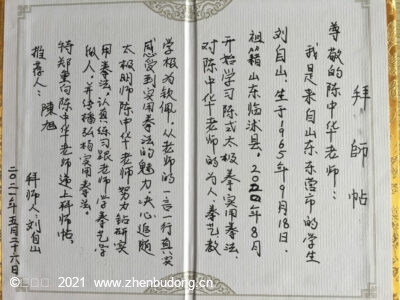 拜師帖
尊敬的陈中华老师：
我是来自山东东营市的学生
刘自山，生于1965年9月18日，
祖籍山东临沭县。2020年8月
开始学习陈式太极拳实用拳法，
对陈中华老师的为人、拳艺教
学极为钦佩。从老师的一言一行真实
感受到实用拳法的魅力，决心追随
太极明师陈中华老师努力钻研实
用拳法，认真练习跟老师学拳艺学
做人，并传播弘扬实用拳法。
特郑重向陈中华老师递上拜师帖。
推荐人：陳旭
拜师人：刘自山
二〇二一年五月二十六日
2021 www.zhenbudong.cn